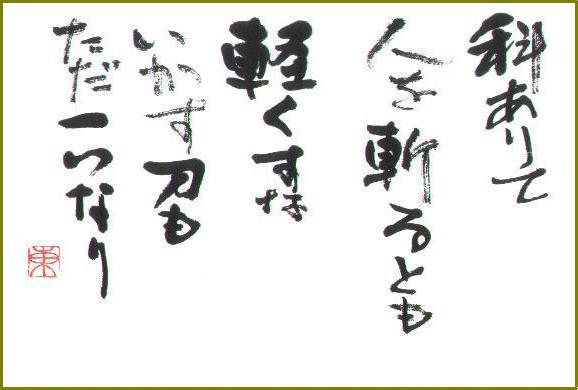 科ありて
人を斬るとも
軽くすな
いかす刀も
ただ一つなり
東